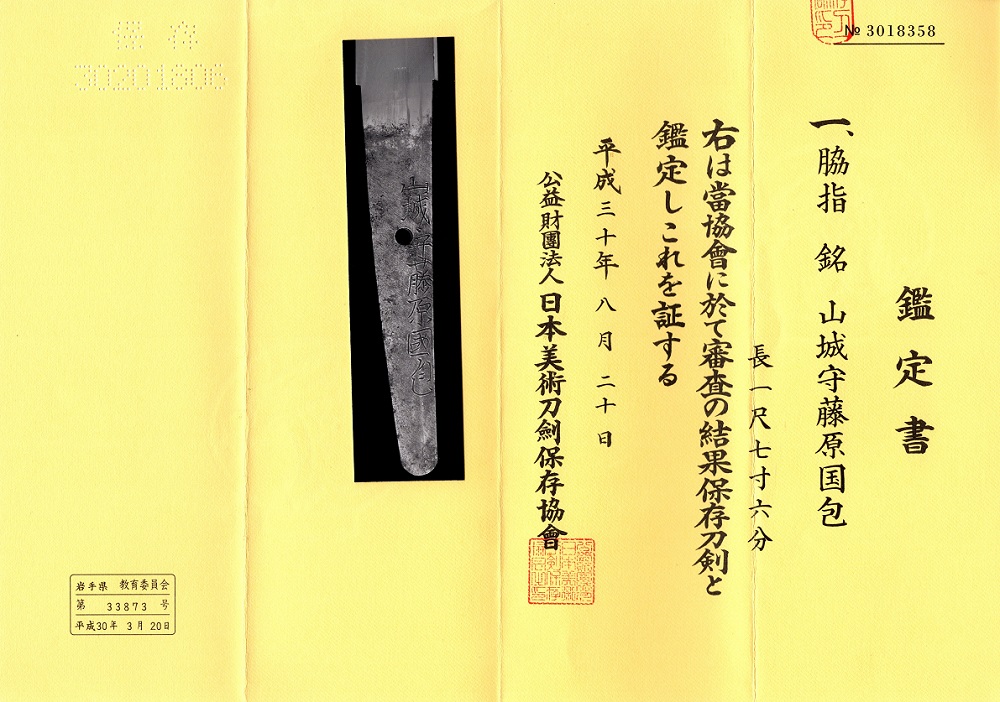 № 3018358
鑑定書
一、脇指 銘 山城守藤原国包
長一尺七寸六分
右は當協會に於て審査の結果保存刀剣と
鑑定しこれを証する
平成三十年八月二十日
公益財團法人日本美術刀劍保存協會
山城守藤原国包
保存
30201806
岩手県 教育委員会
第 33873 号
平成30年 3月 20日